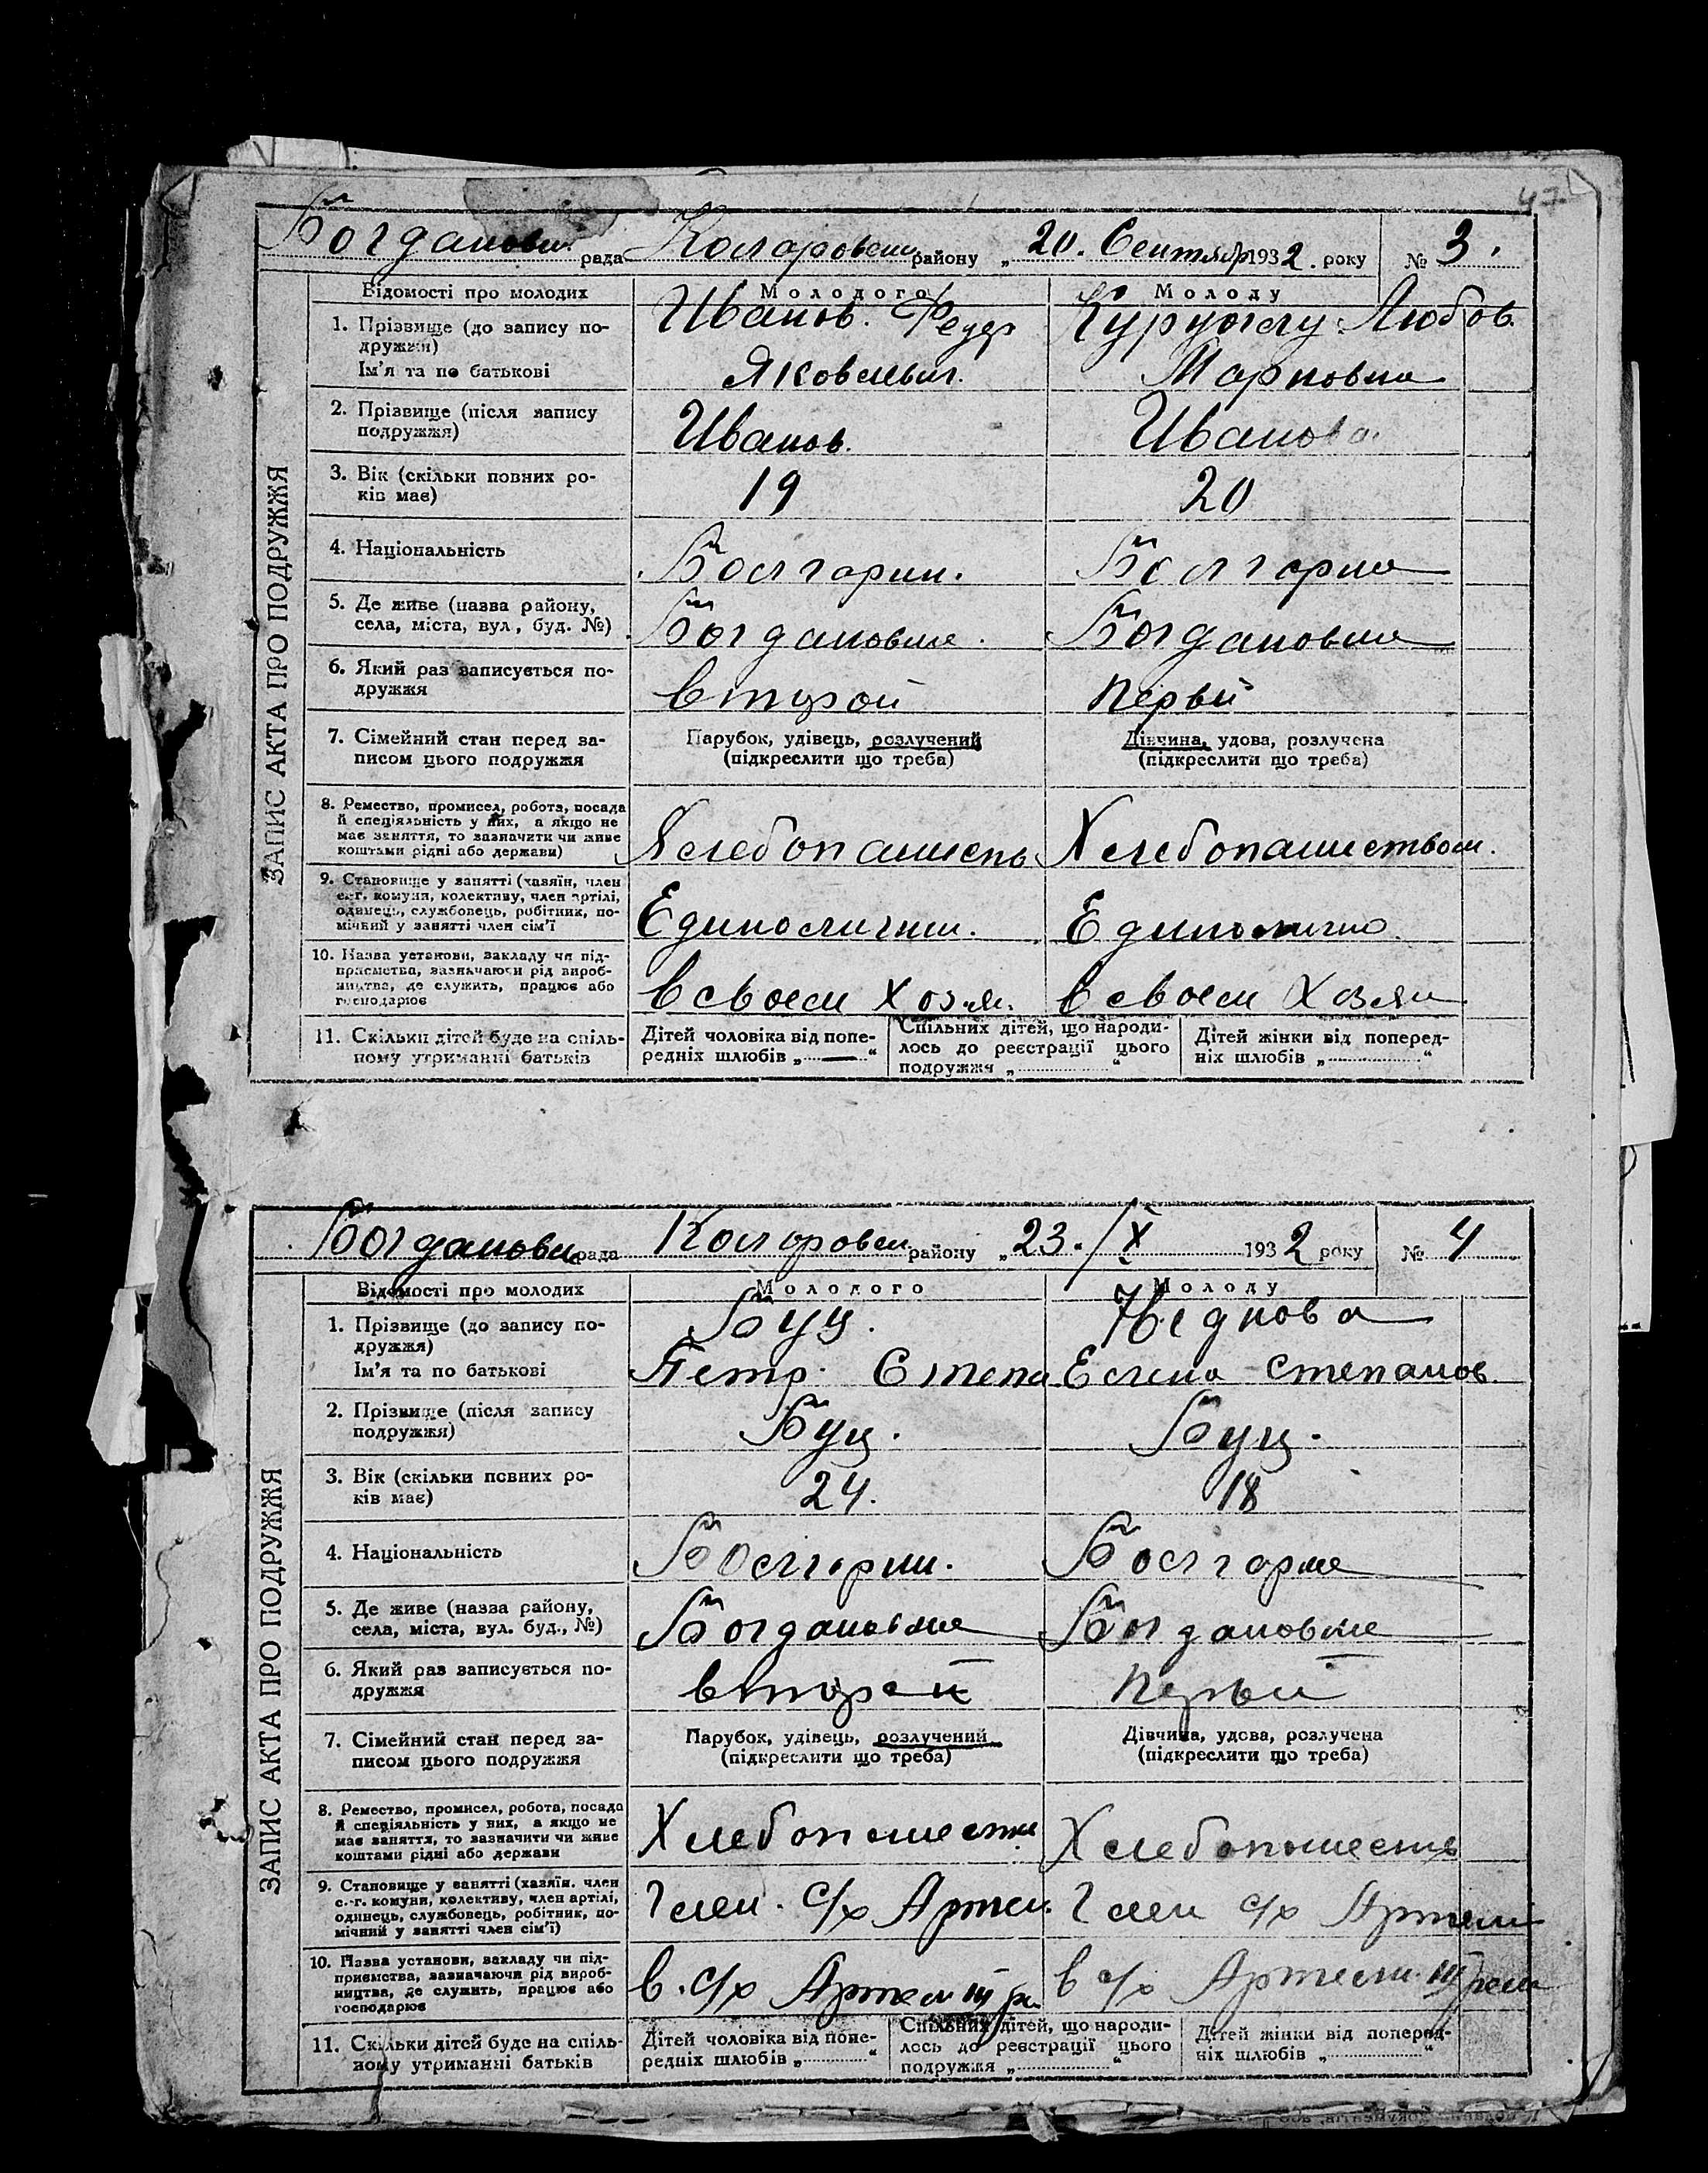 47
Богдановск рада Коларовск району „ 20. Сентября 1932. року № 3.
ЗАПИС АКТА ПРО ПОДРУЖЖЯ
Відомості про молодих Молодого Молоду
1. Прізвище (до запису по- Иванов. Федр Любов.
дружжя)
Ім'я та по батькові Яковлевич. Марковна
2. Прізвище (після запису Иванов. Иванова.
подружжя)
3. Вік (скільки повних ро- 19 20
ків має)
4. Національність Болгарин. Болгарка
5. Де живе (назва району, Богдановке. Богдановке
села, міста, вул., буд. №)
6. Який раз записується по- второй первы
дружжя
7. Сімейний стан перед за- Парубок, удівець, розлучений Дівчина, удова, розлучена
писом цього подружжя (підкреслити що треба) (підкреслити що треба)
8. Ремество, промисел, робота, посада
й спеціяльність у них, а якщо не
має заняття, то зазначити чи живе
коштами рідні або держави) Хлебопашеств Хлебопашеством.
9. Становище у занятті (хазяїн, член
с.-г. комуни, колективу, член артілі,
одинець, службовець, робітник, по-
мічний у занятті член сім'ї Единоличник. Единолично
10. Назва установи, закладу чи під-
приємства, зазначаючи рід вироб-
ництва, де служить, працює або
господарює в своем Хозяй. в своем Хозяй
11. Скільки дітей буде на спіль- Дітей чоловіка від попе- Спільних дітей, що народи- Дітей жінки від поперед-
ному утриманні батьків редніх шлюбів „ — “ лось до реєстрації цього ніх шлюбів „ “
подружжя „ “
Богдановск рада Коларовск району „ 23./IX 1932 року № 4
ЗАПИС АКТА ПРО ПОДРУЖЖЯ
Відомості про молодих Молодого Молоду
1. Прізвище (до запису по- Буц. Недкова
дружжя)
Ім'я та по батькові Петр Степа Елена Степанов.
2. Прізвище (після запису Буц. Буц.
подружжя)
3. Вік (скільки повних ро- 24. 18
ків має)
4. Національність Болгарин. Болгарка
5. Де живе (назва району, Богдановке Богдановке
села, міста, вул. буд., №)
6. Який раз записується по- второй первый
дружжя
7. Сімейний стан перед за- Парубок, удівець, розлучений Дівчина, удова, розлучена
писом цього подружжя (підкреслити що треба) (підкреслити що треба)
8. Ремество, промисел, робота, посада
й спеціяльність у них, а якщо не
має заняття, то зазначити чи живе
коштами рідні або держави Хлебопашеств Хлебопашеств
9. Становище у занятті (хазяїн. член
с.-г. комуни, колективу, член артілі,
одинець, службовець, робітник, по-
мічний у занятті член сім'ї) Член. С/х Артел. Член с/х Артели
10. Назва установи, закладу чи під-
приємства, зазначаючи рід вироб-
ництва, де служить, працює або
господарює в. С/х Артели в с/х Артели
11. Скільки дітей буде на спіль- Дітей чоловіка від попе- Спільних дітей, що народи- Дітей жінки від поперед-
ному утриманні батьків редніх шлюбів „ “ лось до реєстрації цього ніх шлюбів „ “
подружжя „ “